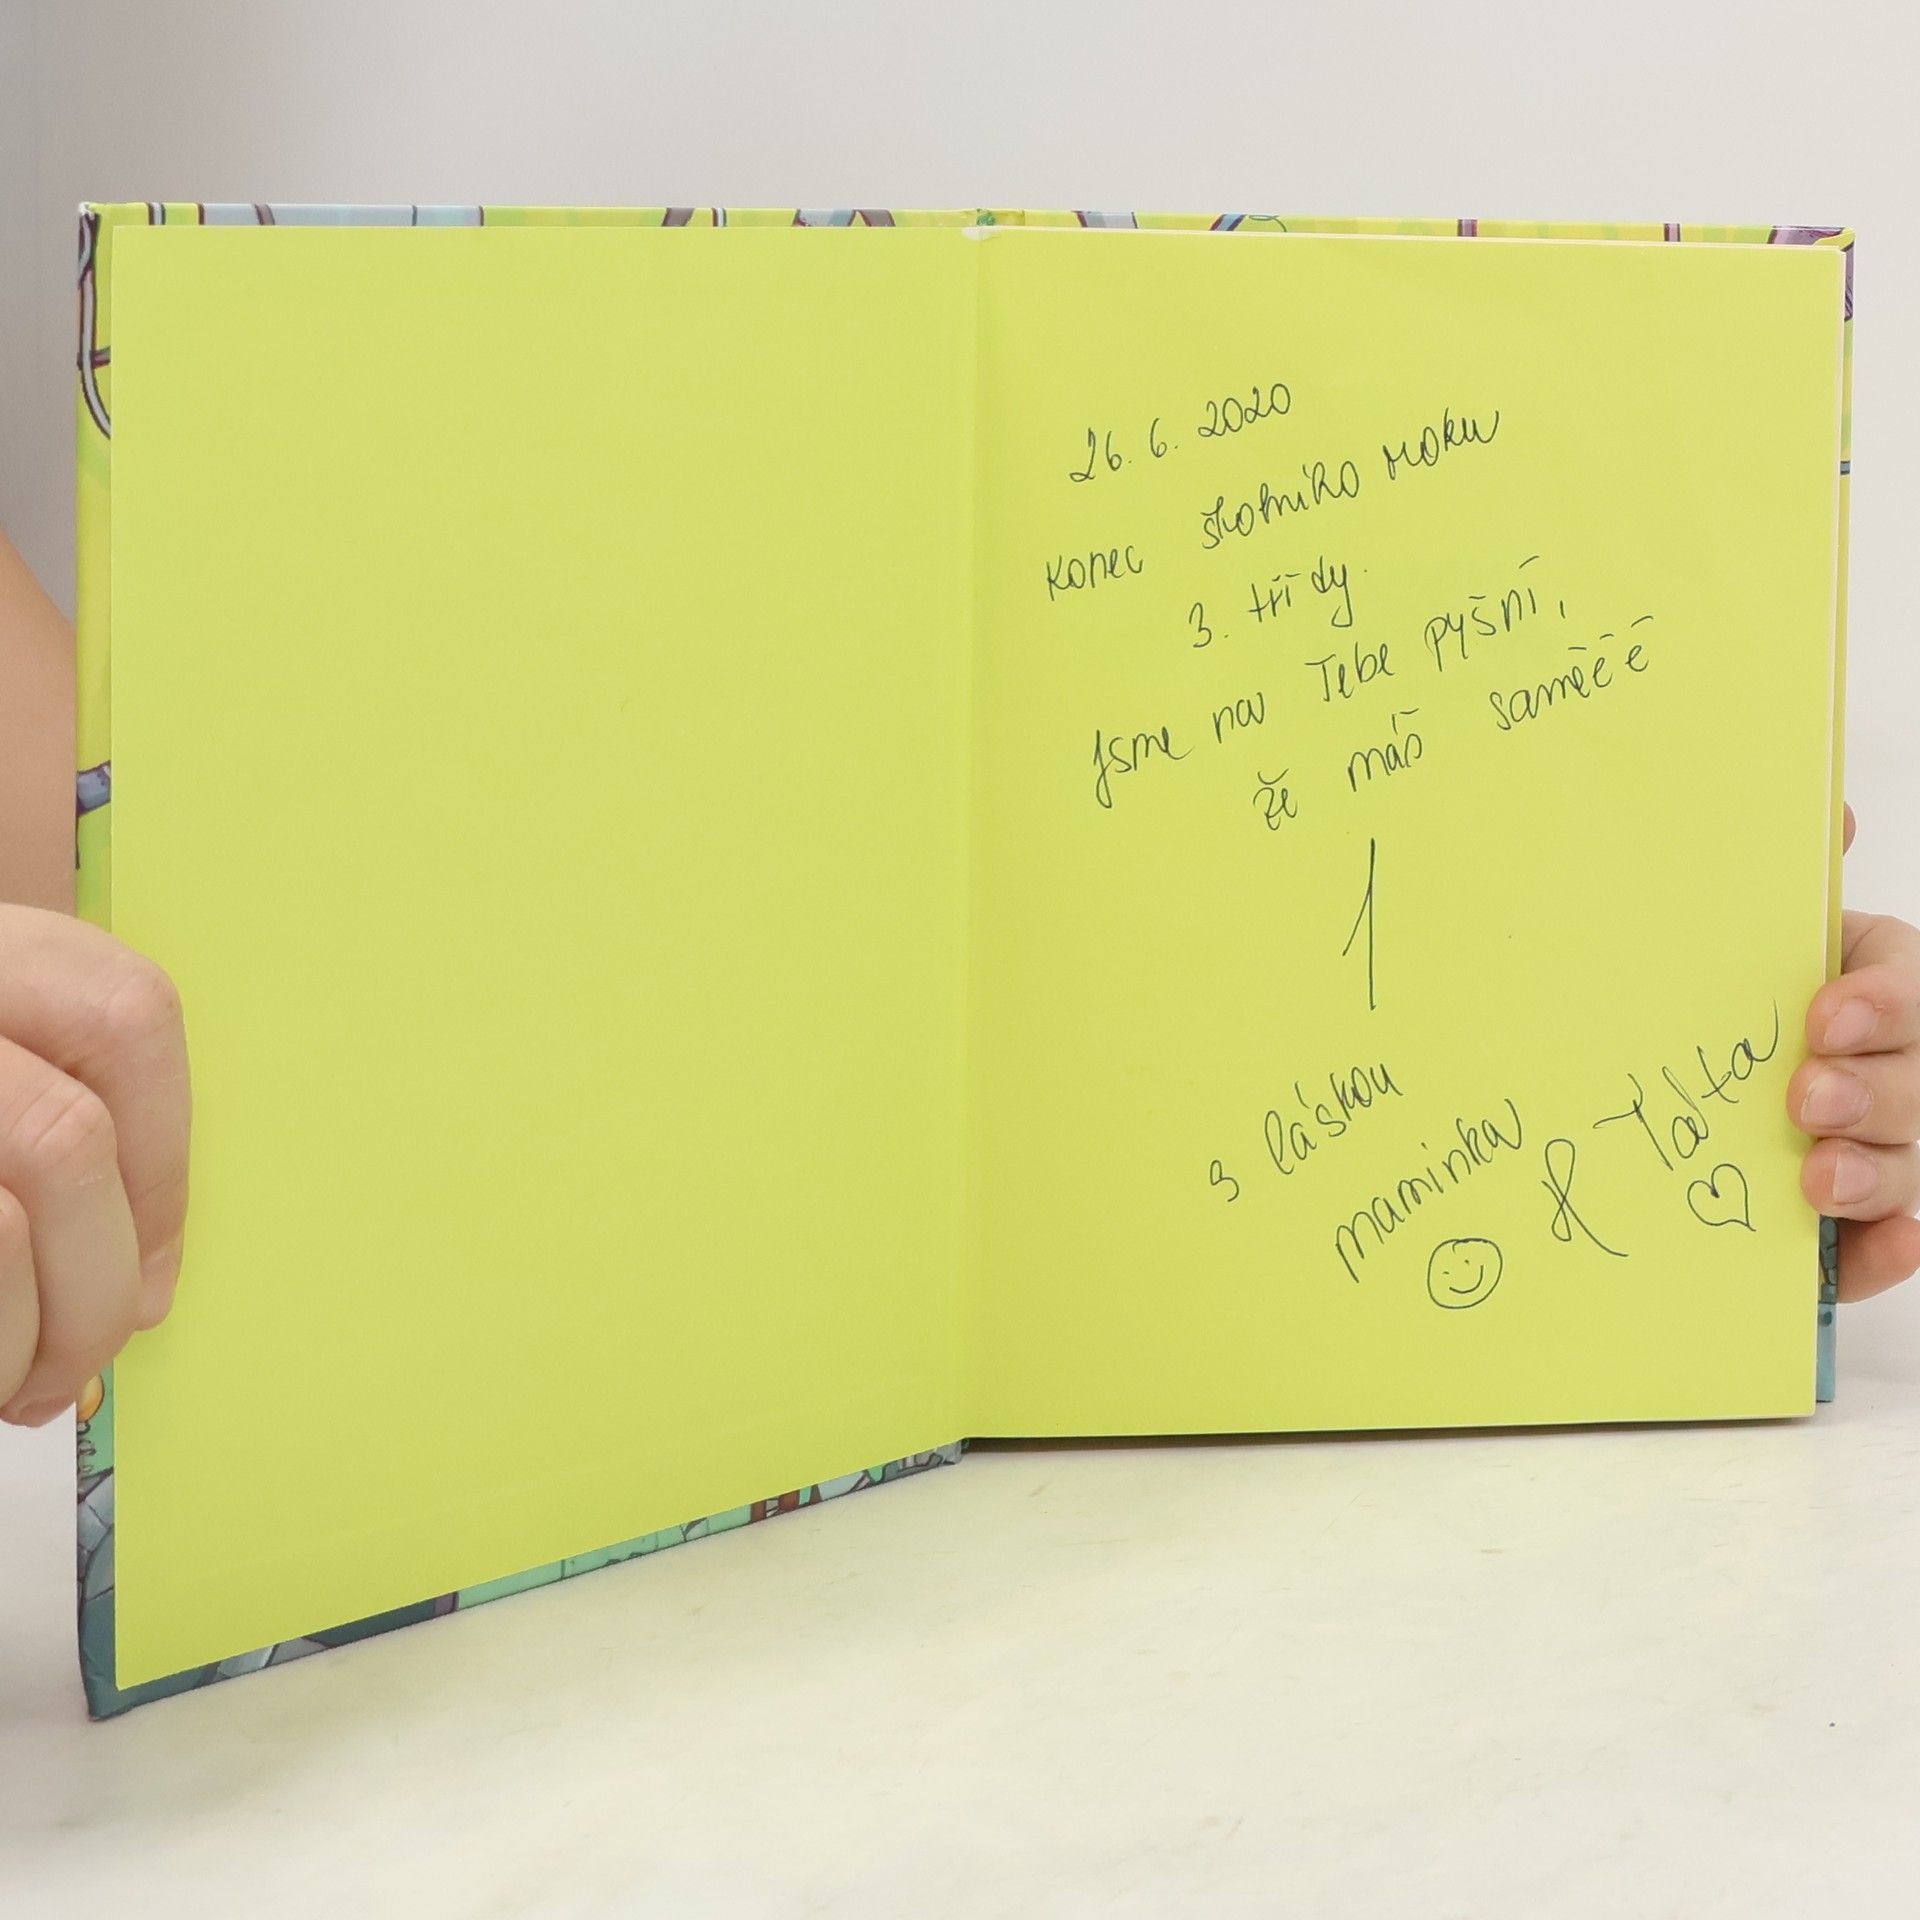 26. 6. 2020
Konec školního roku
3. třídy.
Jsme na Tebe pyšní,
že máš saméé é
1
S láskou
maminka & Taťta